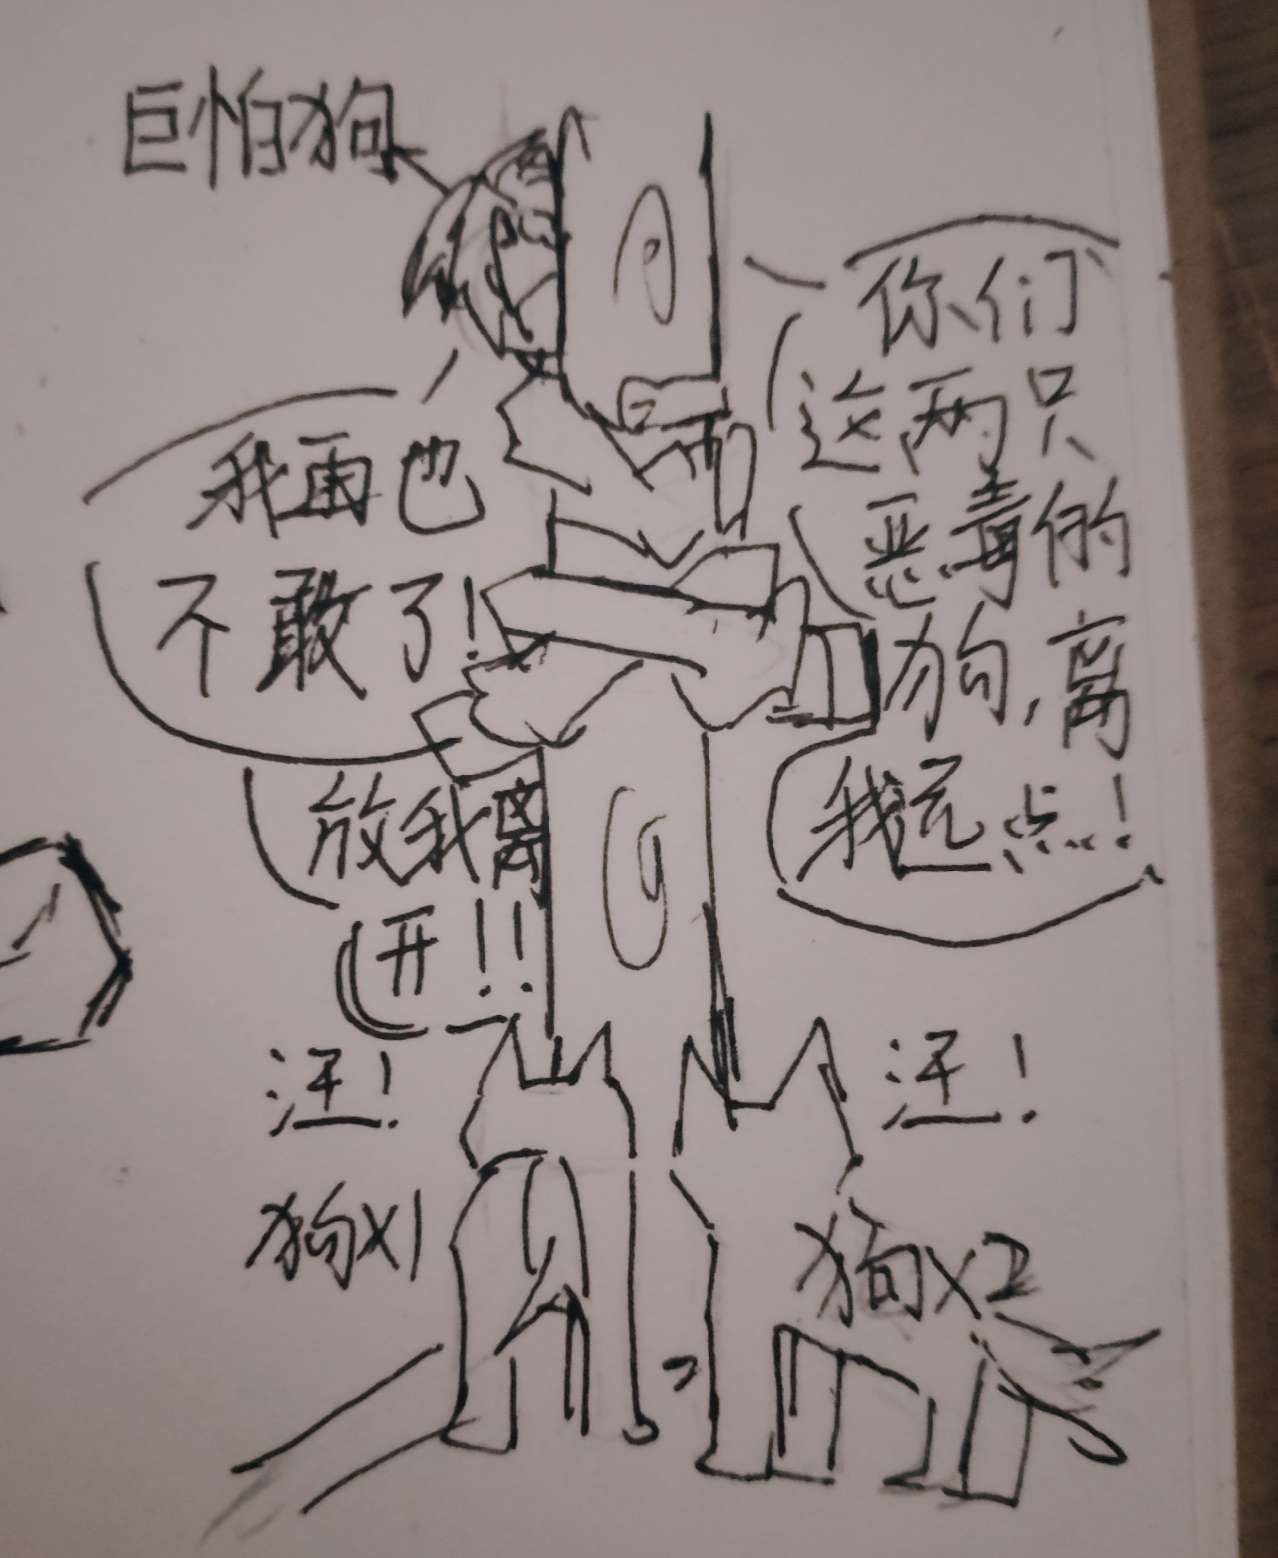 巨怕狗
你们
这两只
恶毒的
狗,离
我远点!
我再也
不敢了!
放我离
开!!
汪!
汪!
狗X1
狗X2